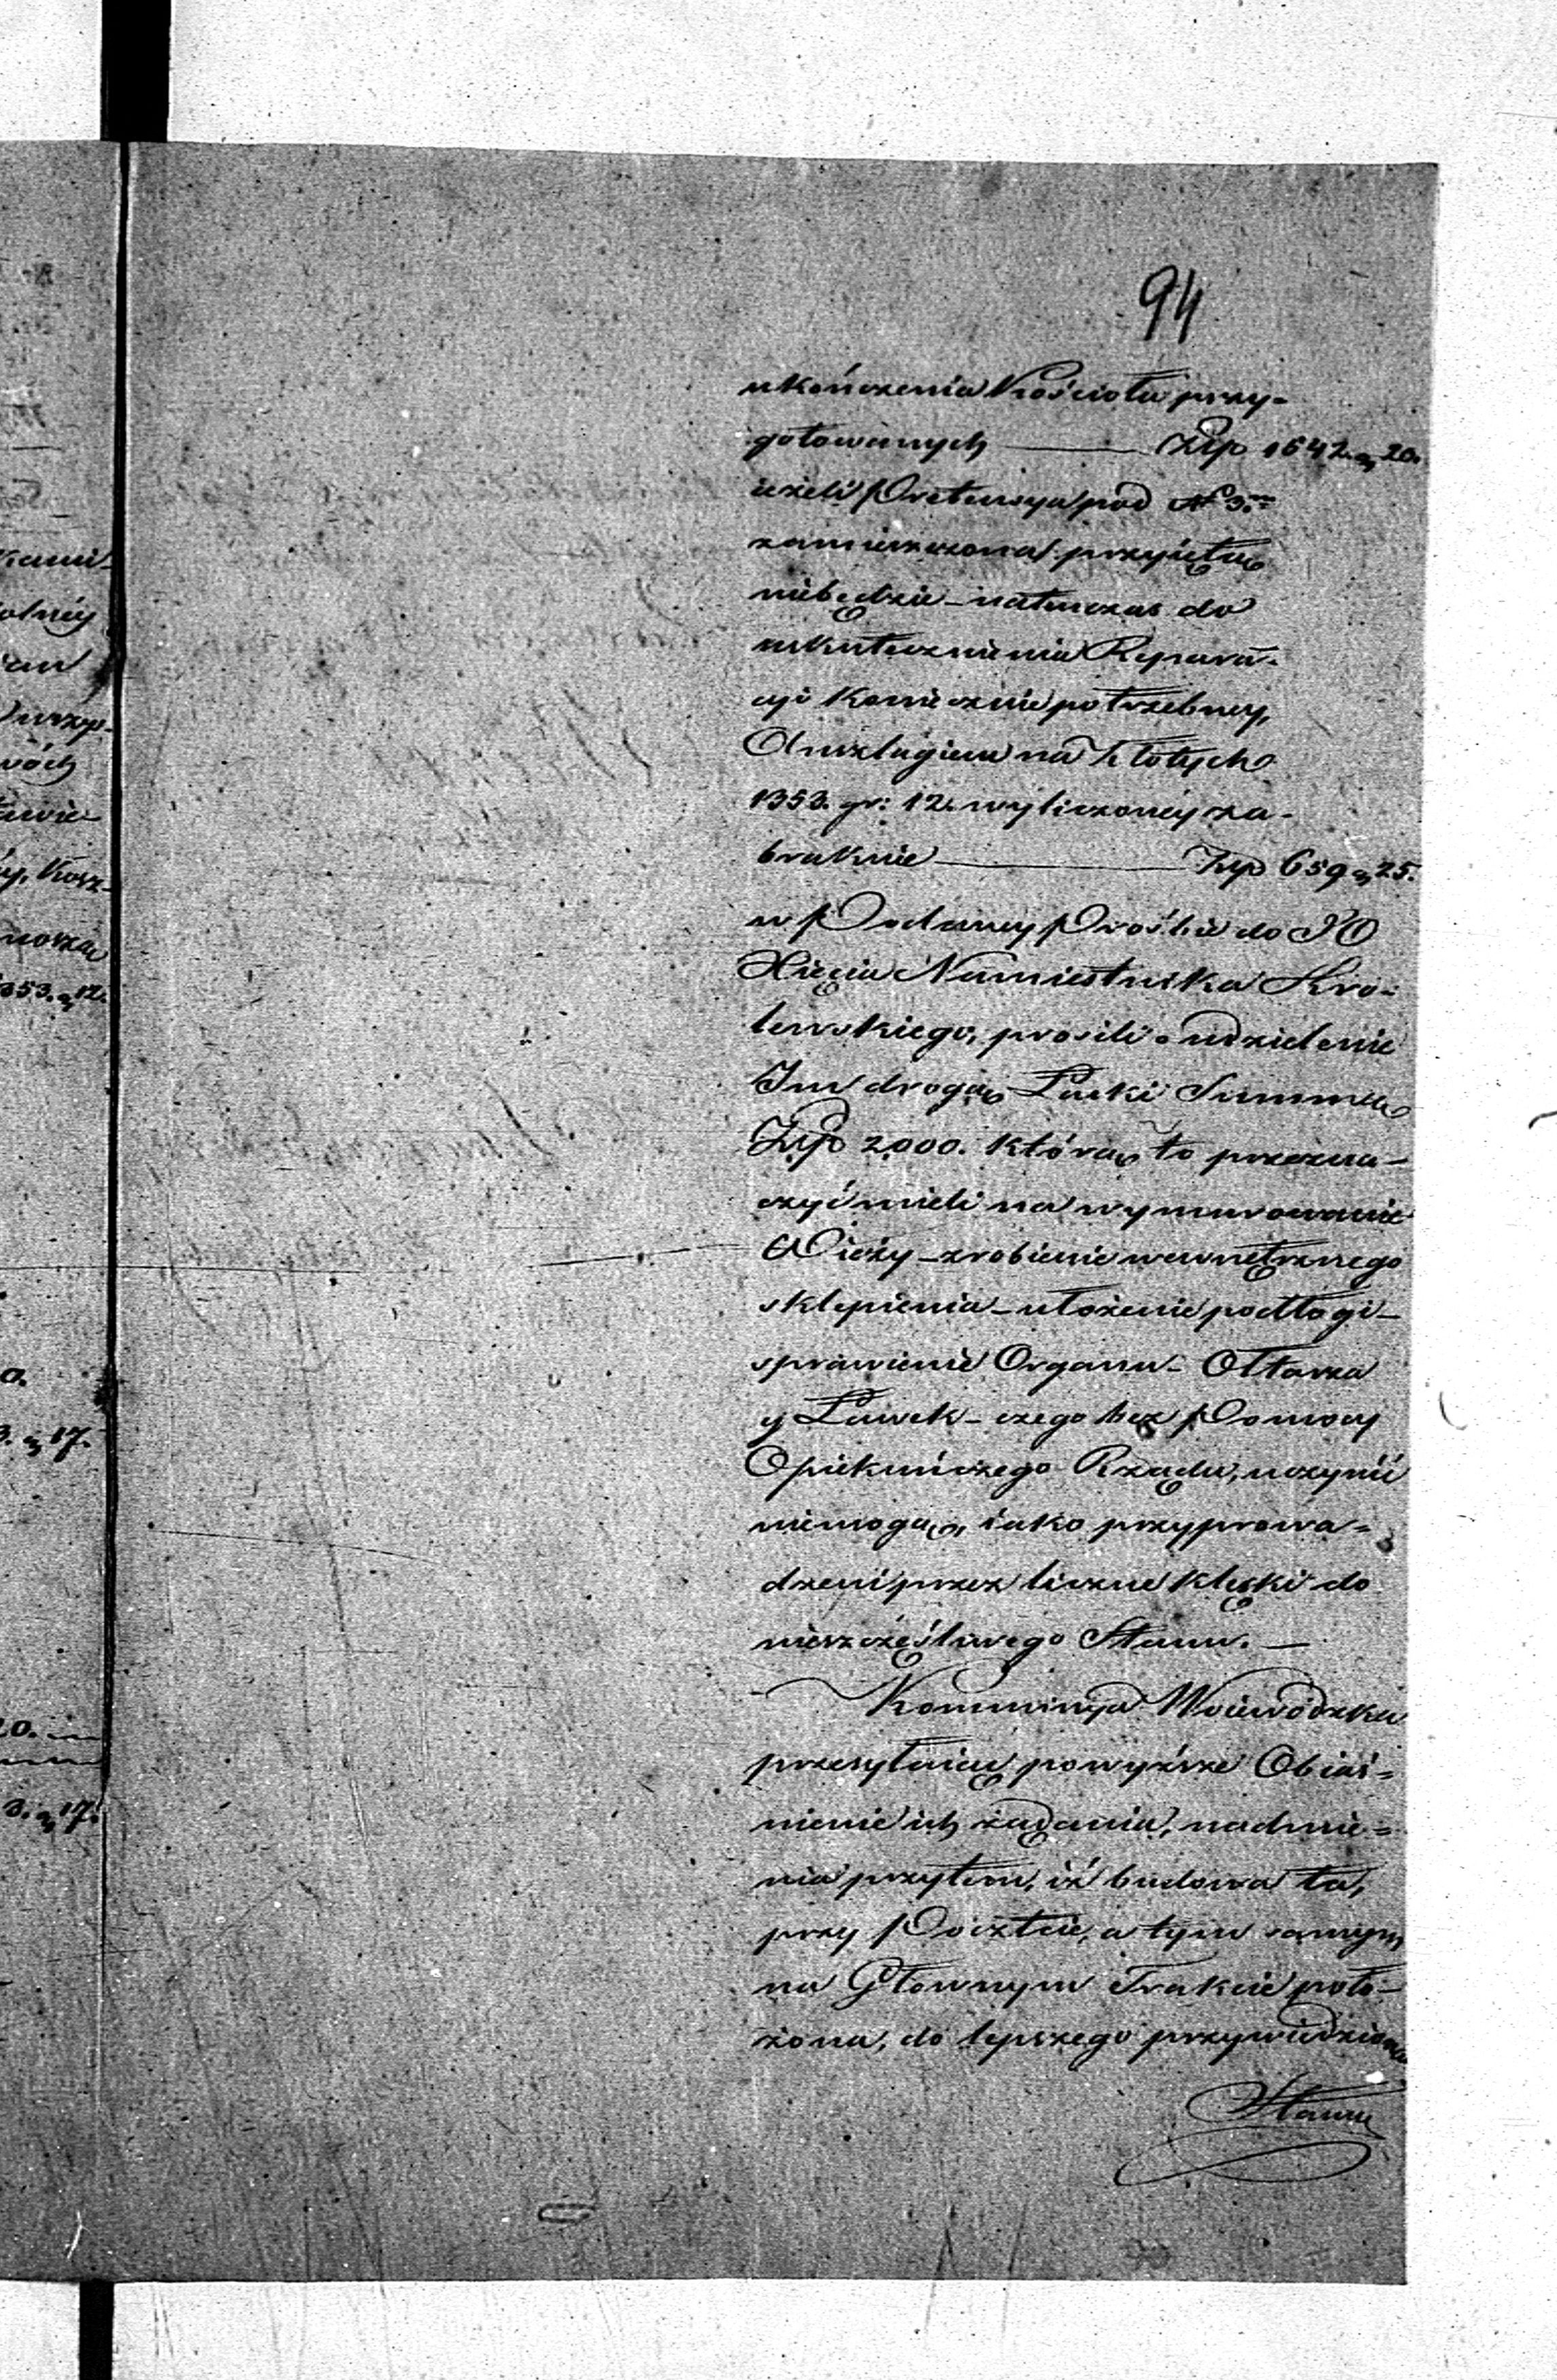 94
ukończenia Kościoła przy-
gotowanych — Złp 1642 gr 20.
ieżeli Pretensya pod N 3.
zamieszczona przyiętą
niebędzie – natenczas do
uskutecznienia Repara-
cyi koniecznie potrzebney,
Anszlagiem na Złotych
1353. gr: 12. wyliczoney za-
braknie — Złp 659 gr 25.
w Podaney Prośbie do JO
Xięcia Namiestnika Kró-
lewskiego, prosili o udzielenie
Im drogą Łaski Summę
Złp 2000. którą to przezna-
czyć mieli na wymurowanie
Wieży – zrobienie wewnętrznego
sklepienia – ułożenie podłogi –
sprawienie Organu – Ołtarza
y Ławek – czego bez Pomocy
Opiekuńczego Rządu, uczynić
niemogą, iako przyprowa-
dzeni przez liczne klęski do
nieszczęśliwego Stanu. —
Kommissya Woiewódzka
przesyłaiąc powyższe Obiaś-
nienie ich żądania, nadmie-
nia przytem, iż budowa ta,
przy Poczcie, a tym samym
na Głownym Trakcie poło-
żona, do lepszego przywiedziona
Stanu
kami-
olnéy
noszą
353. gr 12.
3. gr 17.
20.
3. gr 17.